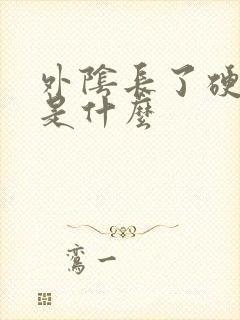 外陰長了硬
是什麼
鸞一